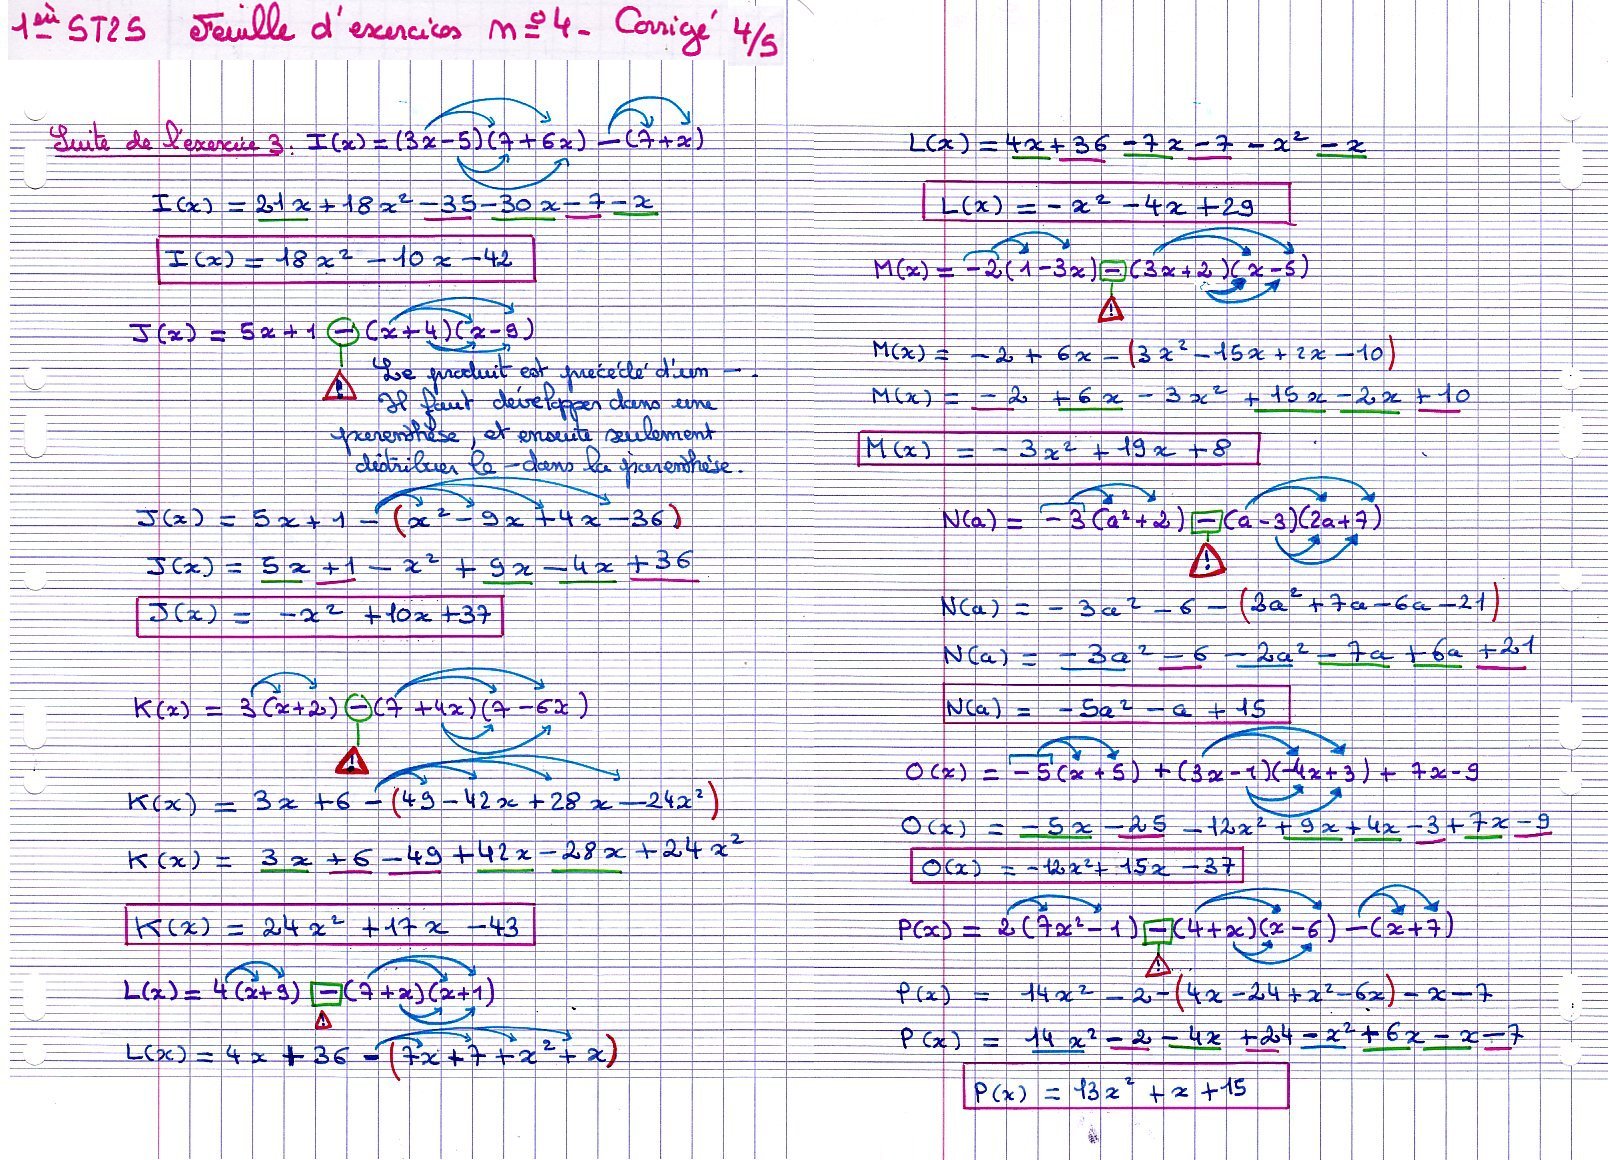 1ère ST2S Feuille d'exercices n°4 - Corrigé 4/5
Suite de l'exercice 3: I(x) = (3x-5)(7+6x) - (7+x)
I(x) = 21x + 18x² - 35 - 30x - 7 - x
I(x) = 18x² - 10x - 42
J(x) = 5x+1 - (x+4)(x-9)
Le produit est précédé d'un -.
Il faut développer dans une
parenthèse, et ensuite seulement
distribuer le - dans la parenthèse.
J(x) = 5x+1 - (x² - 9x + 4x - 36)
J(x) = 5x + 1 - x² + 9x - 4x + 36
J(x) = -x² + 10x + 37
K(x) = 3(x+2) - (7+4x)(7-6x)
K(x) = 3x + 6 - (49 - 42x + 28x - 24x²)
K(x) = 3x + 6 - 49 + 42x - 28x + 24x²
K(x) = 24x² + 17x - 43
L(x) = 4(x+9) - (7+x)(x+1)
L(x) = 4x + 36 - (7x + 7 + x² + x)
L(x) = 4x + 36 - 7x - 7 - x² - x
L(x) = -x² - 4x + 29
M(x) = -2(1-3x) - (3x+2)(x-5)
M(x) = -2 + 6x - (3x² - 15x + 2x - 10)
M(x) = -2 + 6x - 3x² + 15x - 2x + 10
M(x) = -3x² + 19x + 8
N(a) = -3(a²+2) - (a-3)(2a+7)
N(a) = -3a² - 6 - (2a² + 7a - 6a - 21)
N(a) = -3a² - 6 - 2a² - 7a + 6a + 21
N(a) = -5a² - a + 15
O(x) = -5(x+5) + (3x-1)(-4x+3) + 7x - 9
O(x) = -5x - 25 - 12x² + 9x + 4x - 3 + 7x - 9
O(x) = -12x² + 15x - 37
P(x) = 2(7x²-1) - (4+x)(x-6) - (x+7)
P(x) = 14x² - 2 - (4x - 24 + x² - 6x) - x - 7
P(x) = 14x² - 2 - 4x + 24 - x² + 6x - x - 7
P(x) = 13x² + x + 15